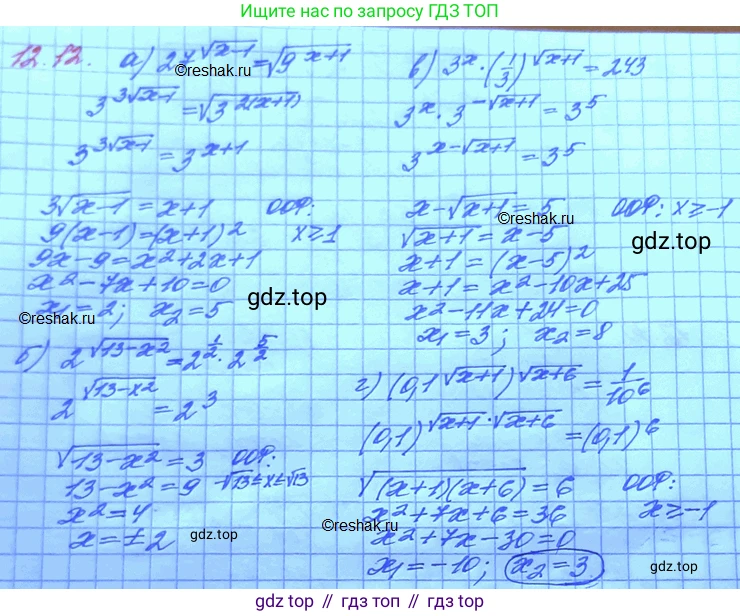 Ищите нас по запросу ГДЗ ТОП
12.12. а) 27^√(x-1) = √(9^(x+1))
©reshak.ru
3^(3√(x-1)) = √(3^(2(x+1)))
3^(3√(x-1)) = 3^(x+1)
3√(x-1) = x+1 ООФ:
9(x-1)=(x+1)² x≥1
9x-9=x²+2x+1
x²-7x+10=0
gdz.top
x₁=2; x₂=5
©reshak.ru
б) 2^√(13-x²) = 2^(1/2) · 2^(5/2)
2^√(13-x²) = 2³
√(13-x²) = 3 ООФ:
13-x²=9 -√13≤x≤√13
x²=4
x=±2
gdz.top
в) 3^x · (1/3)^√(x+1) = 243
©reshak.ru
3^x · 3^(-√(x+1)) = 3⁵
3^(x-√(x+1)) = 3⁵
©reshak.ru
x-√(x+1) = 5 ООФ: x≥-1
©reshak.ru
√(x+1) = x-5
gdz.top
x+1 = (x-5)²
x+1 = x²-10x+25
x²-11x+24=0
x₁=3; x₂=8
г) (0,1^√(x+1))^√(x+6) = 1/10⁶
(0,1)^(√(x+1)·√(x+6)) = (0,1)⁶
√((x+1)(x+6)) = 6 ООФ:
x²+7x+6=36 x≥-1
©reshak.ru
x²+7x-30=0
x₁=-10; x₂=3
gdz.top
gdz.top // гдз.топ // gdz.top